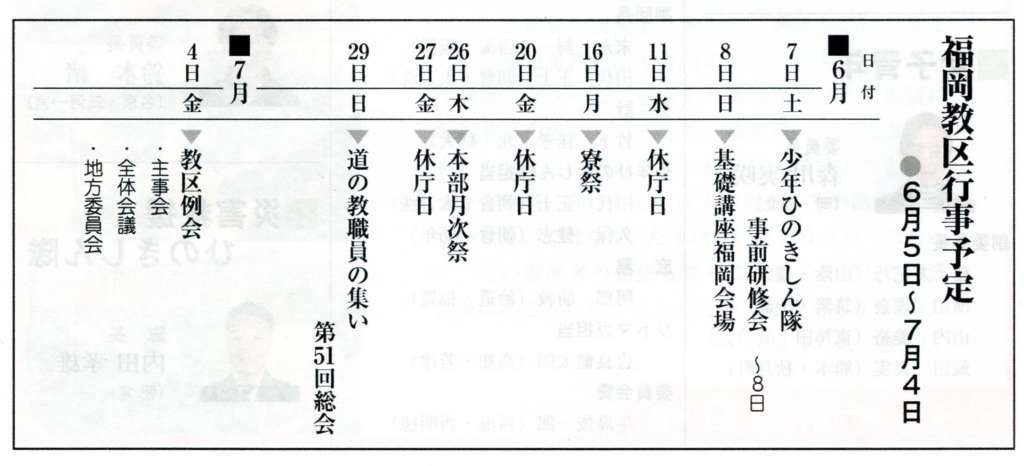 福岡教区行事予定
●6月5日～7月4日
日付
■6月
7日 土 ▼少年ひのきしん隊
事前研修会 ～8日
8日 日 ▼基礎講座福岡会場
11日 水 ▼休庁日
16日 月 ▼寮祭
20日 金 ▼休庁日
26日 木 ▼本部月次祭
27日 金 ▼休庁日
29日 日 ▼道の教職員の集い
第51回総会
■7月
4日 金 ▼教区例会
・主事会
全体会議
・地方委員会